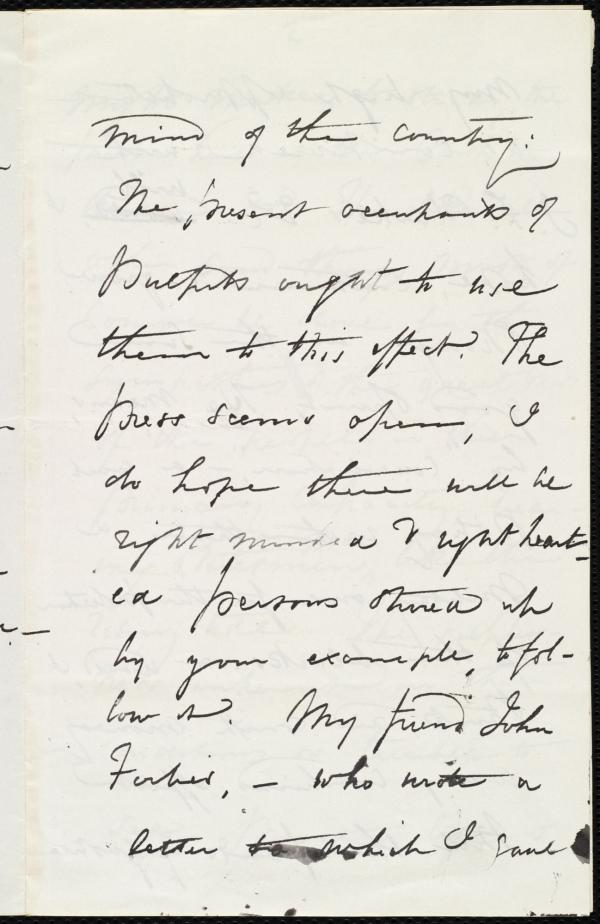 mind of the country:
The present occupants of
Pulpits ought to use
them to this effect. The
press seems open, I
do hope there will be
right minded & right heart-
ed persons stirred up
by your example, to fol-
low it. My friend John
Forbes, – who wrote a
letter to which I gave